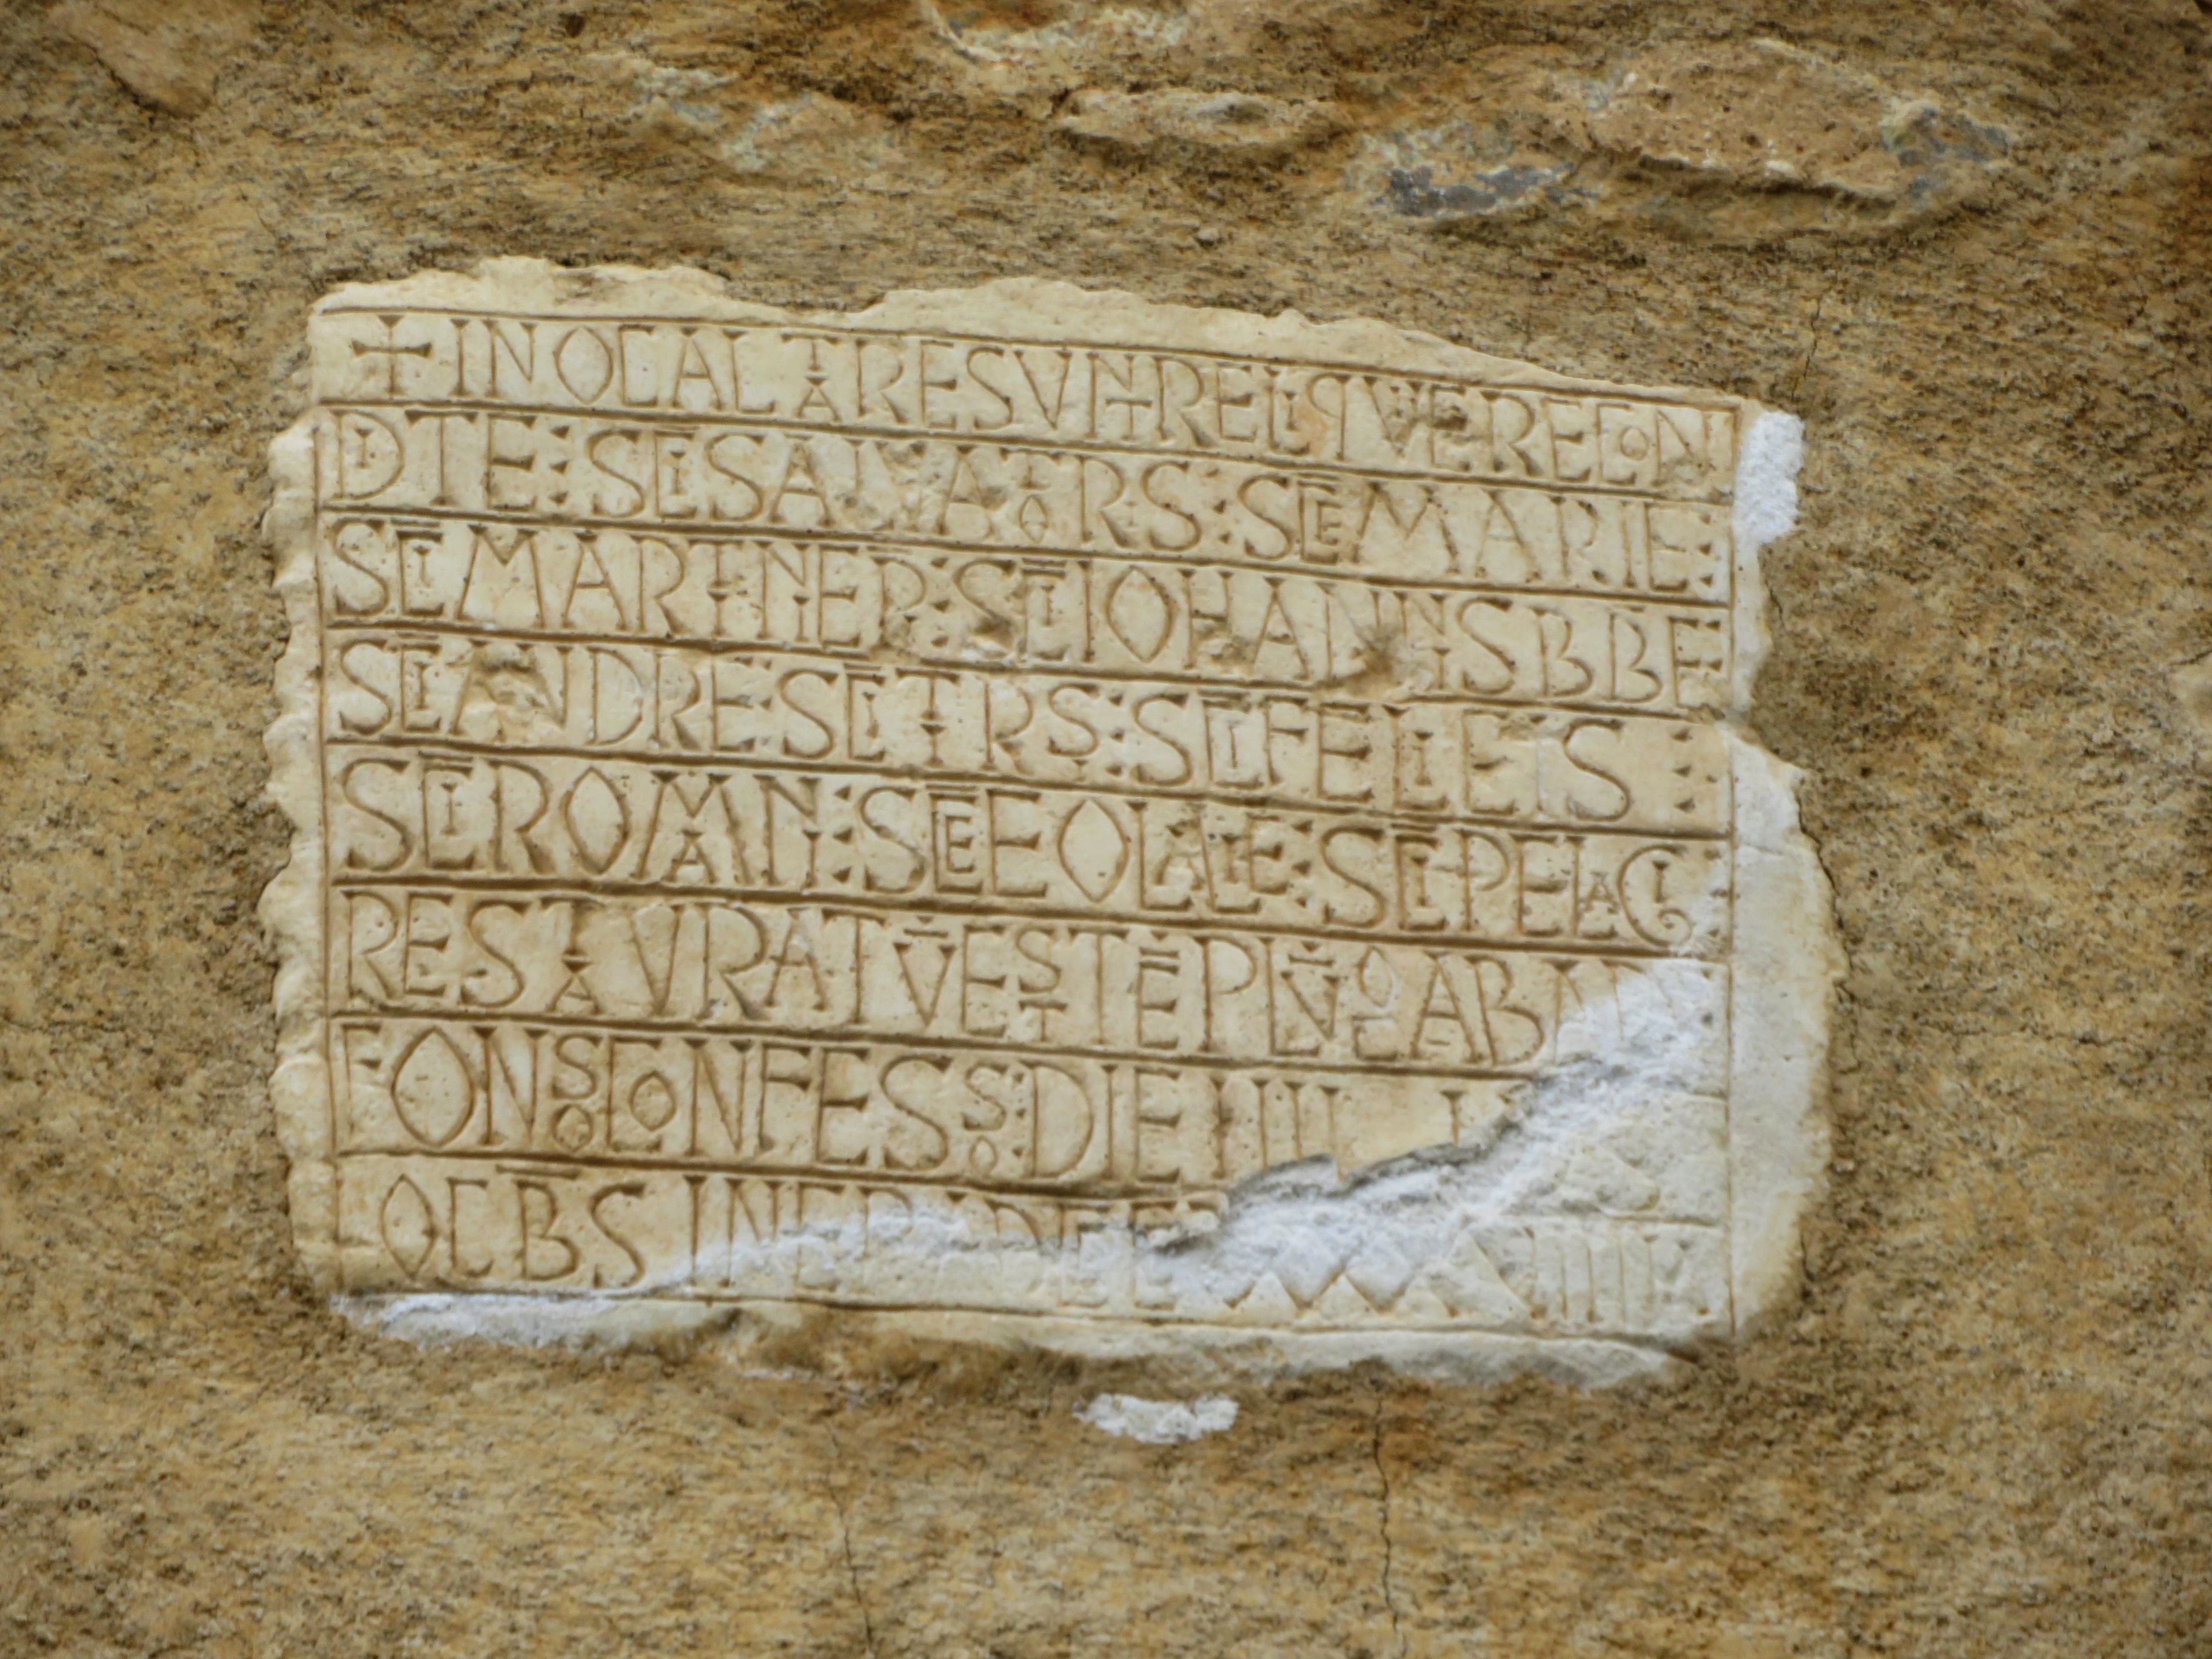 + INOCALTARE SVNT RELIQVVE RECON
DITE : SCI SALVATORIS : SCE MARIE :
SCI MARTINI EP : SCI IOHANNIS BBE
SCI ANDRE SCI TRS : SCI FELICIS :
SCI ROMANI : SCE EOLALIE : SCI PELAGI
RESTAVRATV EST TEPLV OC AB
FONSO CONFESSO : DIE IIII
LOCBS IN